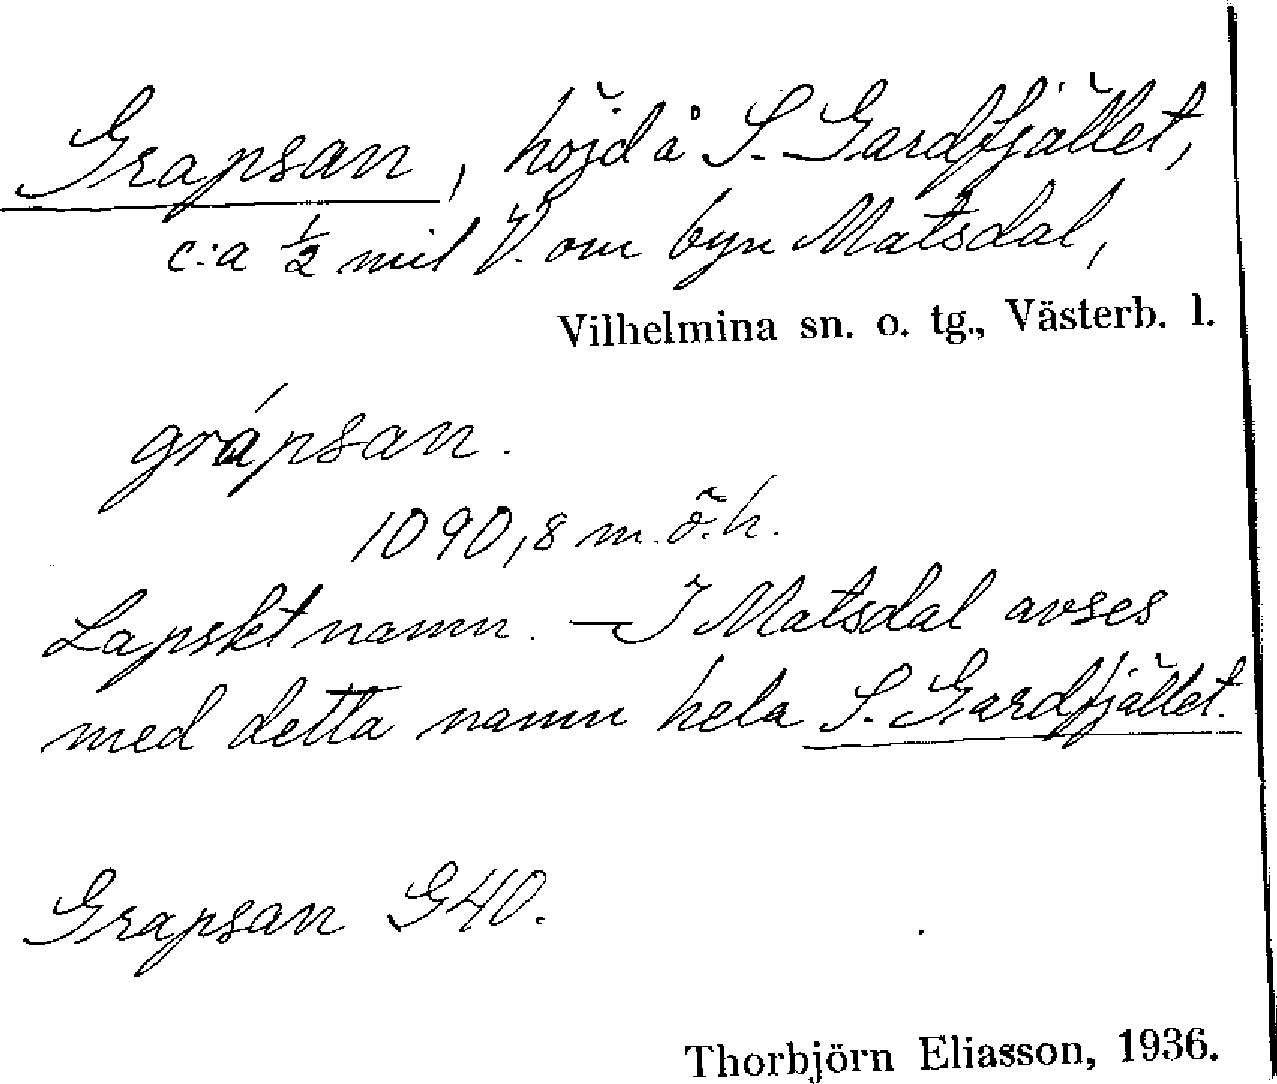 Grapsan, höjd å S. Gardfjället,
c:a ½ mil V. om byn Matsdal,
Vilhelmina sn. o. tg., Västerb. l.
grápsan.
1090,8 m. ö. h.
Lapskt namn. – I Matsdal avses
med detta namn hela S. Gardfjället.
Grapsan G40.
Thorbjörn Eliasson, 1936.